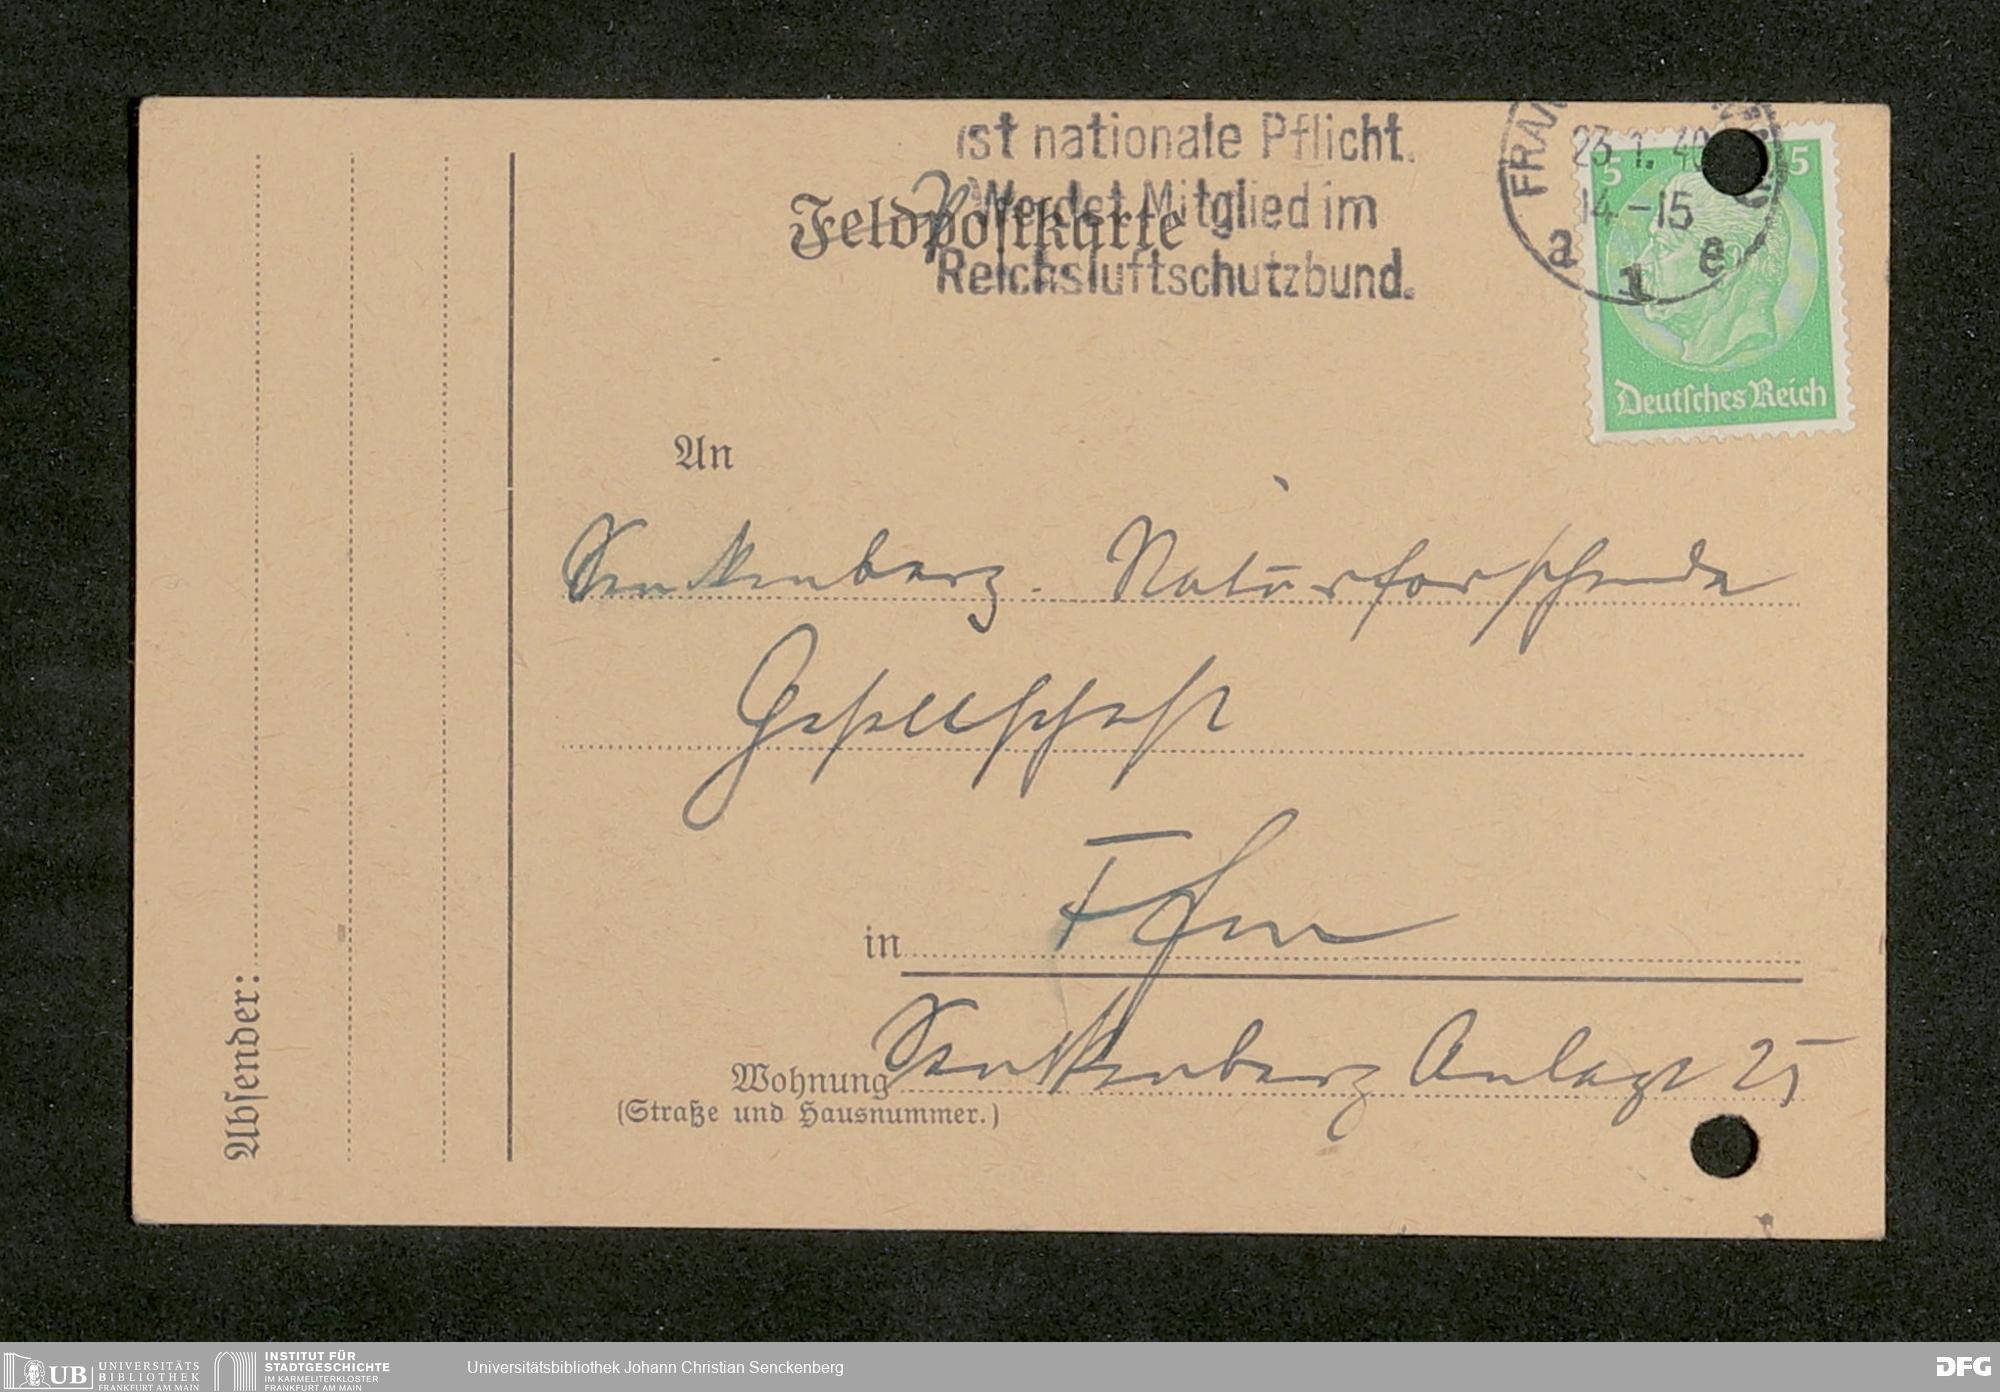 ist nationale Pflicht.
Werdet Mitglied im
Reichsluftschutzbund.
Feldpostkarte
23.1.40
14-15
a 1 e
5 5
Deutsches Reich
An
Senckenberg. Naturforschende
Gesellschaft
in Ffm
Wohnung Senckenberg Anlage 25
(Straße und Hausnummer.)
Absender:
UB UNIVERSITÄTS
BIBLIOTHEK
FRANKFURT AM MAIN
INSTITUT FÜR
STADTGESCHICHTE
IM KARMELITERKLOSTER
FRANKFURT AM MAIN
Universitätsbibliothek Johann Christian Senckenberg
DFG